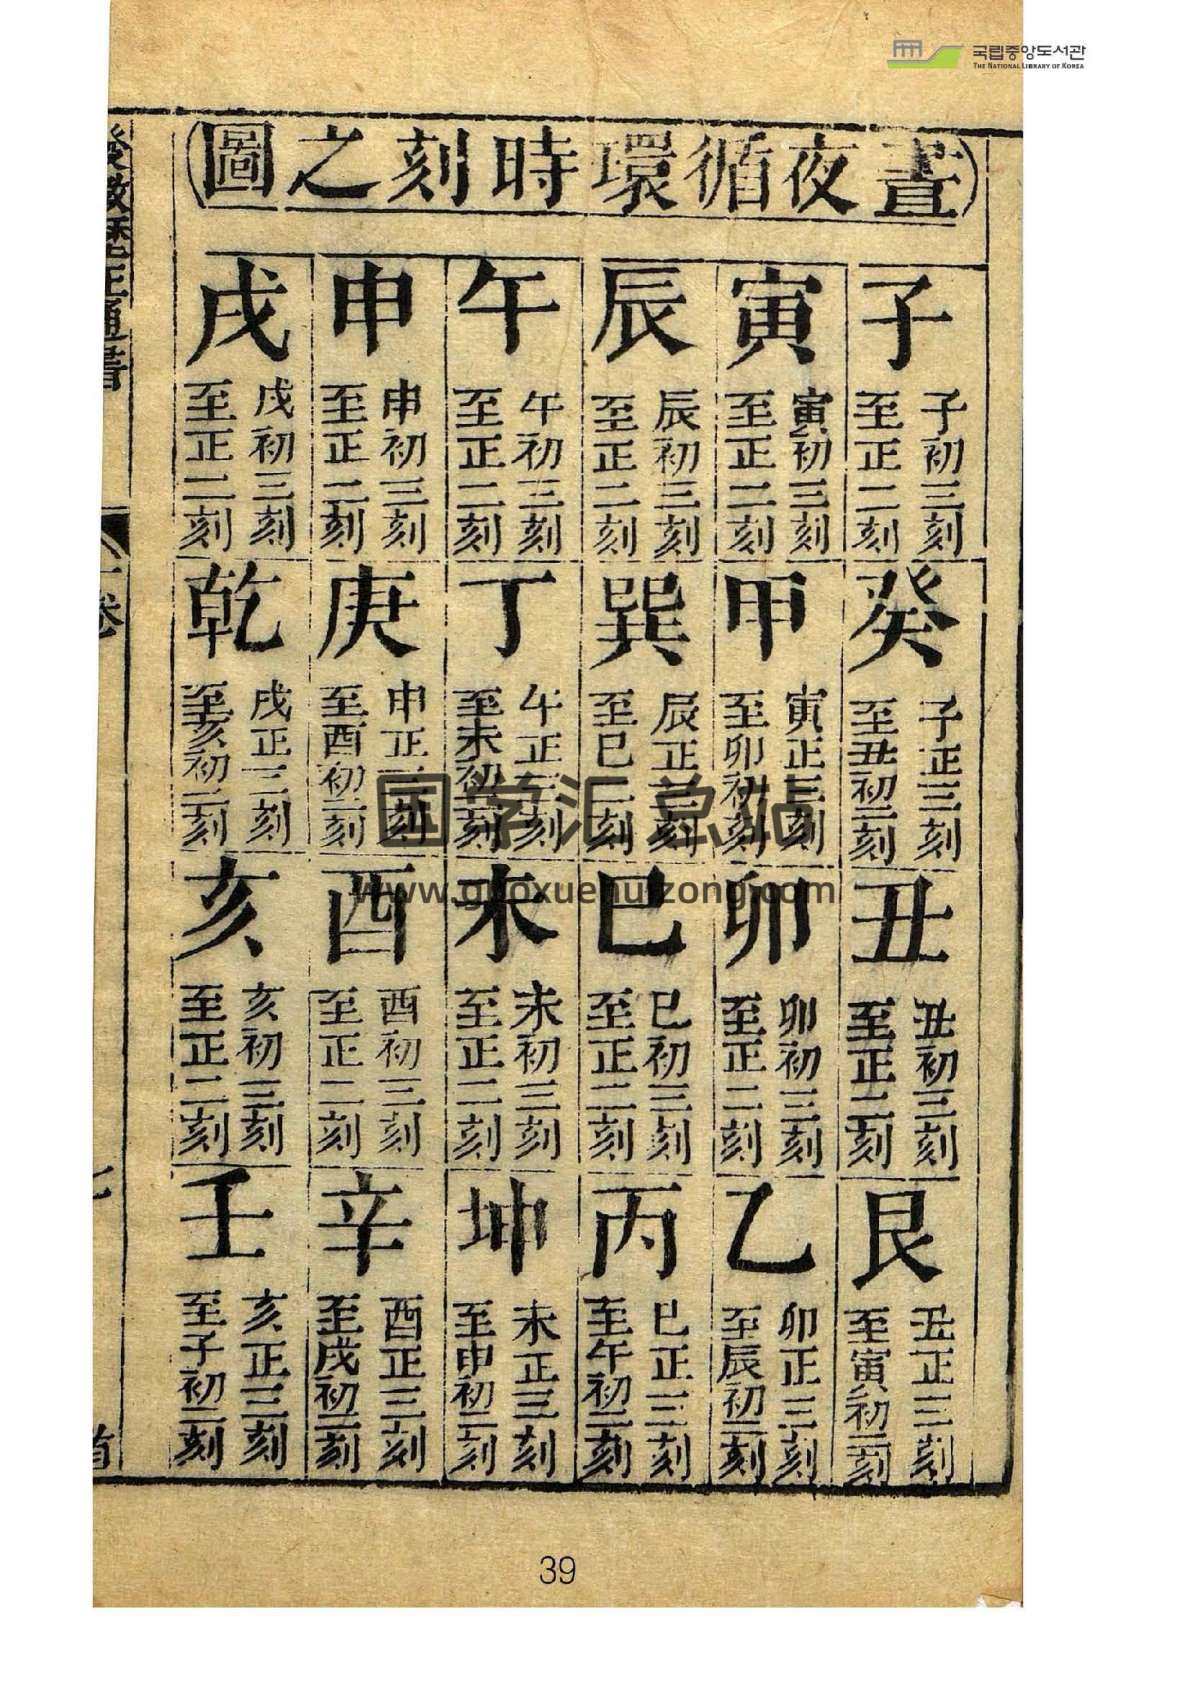 국립중앙도서관
THE NATIONAL LIBRARY OF KOREA
晝夜循環時刻之圖
子
子初三刻
至正二刻
癸
子正三刻
至丑初二刻
丑
丑初三刻
至正二刻
艮
丑正三刻
至寅初二刻
寅
寅初三刻
至正二刻
甲
寅正三刻
至卯初二刻
卯
卯初三刻
至正二刻
乙
卯正三刻
至辰初二刻
辰
辰初三刻
至正二刻
巽
辰正三刻
至巳二刻
巳
巳初三刻
至正二刻
丙
巳正三刻
至午初二刻
午
午初三刻
至正二刻
丁
午正三刻
至未初二刻
未
未初三刻
至正二刻
坤
未正三刻
至申初二刻
申
申初三刻
至正二刻
庚
申正三刻
至酉初二刻
酉
酉初三刻
至正二刻
辛
酉正三刻
至戌初二刻
戌
戌初三刻
至正二刻
乾
戌正三刻
至亥初二刻
亥
亥初三刻
至正二刻
壬
亥正三刻
至子初二刻
正通書
卷
首
国学汇总站
www.guoxuehuizong.com
39